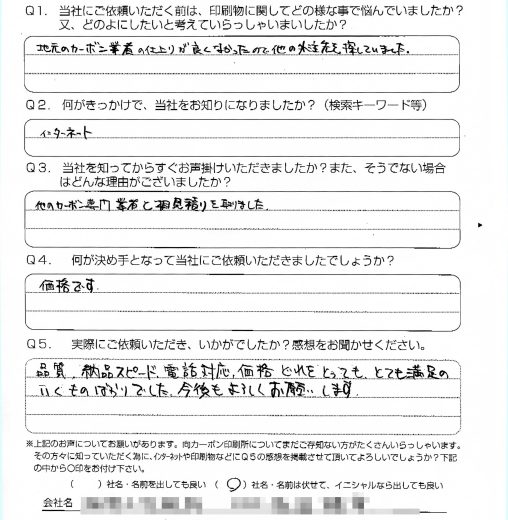 Q1. 当社にご依頼いただく前は、印刷物に関してどの様な事で悩んでいましたか？
又、どのよにしたいと考えていらっしゃいまいましたか？
地元のカーボン業者の仕上りが良くなかったので他の外注先を探していました。
Q2. 何がきっかけで、当社をお知りになりましたか？（検索キーワード等）
インターネット
Q3. 当社を知ってからすぐお声掛けいただきましたか？また、そうでない場合
はどんな理由がございましたか？
他のカーボン専門業者と相見積りを取りました。
Q4. 何が決め手となって当社にご依頼いただきましたでしょうか？
価格です.
Q5. 実際にご依頼いただき、いかがでしたか？感想をお聞かせください。
品質、納品スピード、電話対応、価格 どれをとっても、とても満足の
いくものばかりでした。今後もよろしくお願いします.
※上記のお声についてお願いがあります。向カーボン印刷所についてまだご存知ない方がたくさんいらっしゃいます。
その方々に知っていただく為に、インターネットや印刷物などにQ5の感想を掲載させて頂いてよろしいでしょうか？下記
の中から〇印をお付け下さい。
（ ）社名・名前を出しても良い（〇）社名・名前は伏せて、イニシャルなら出しても良い
会社名